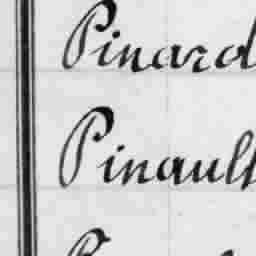 Pinard
Pinault